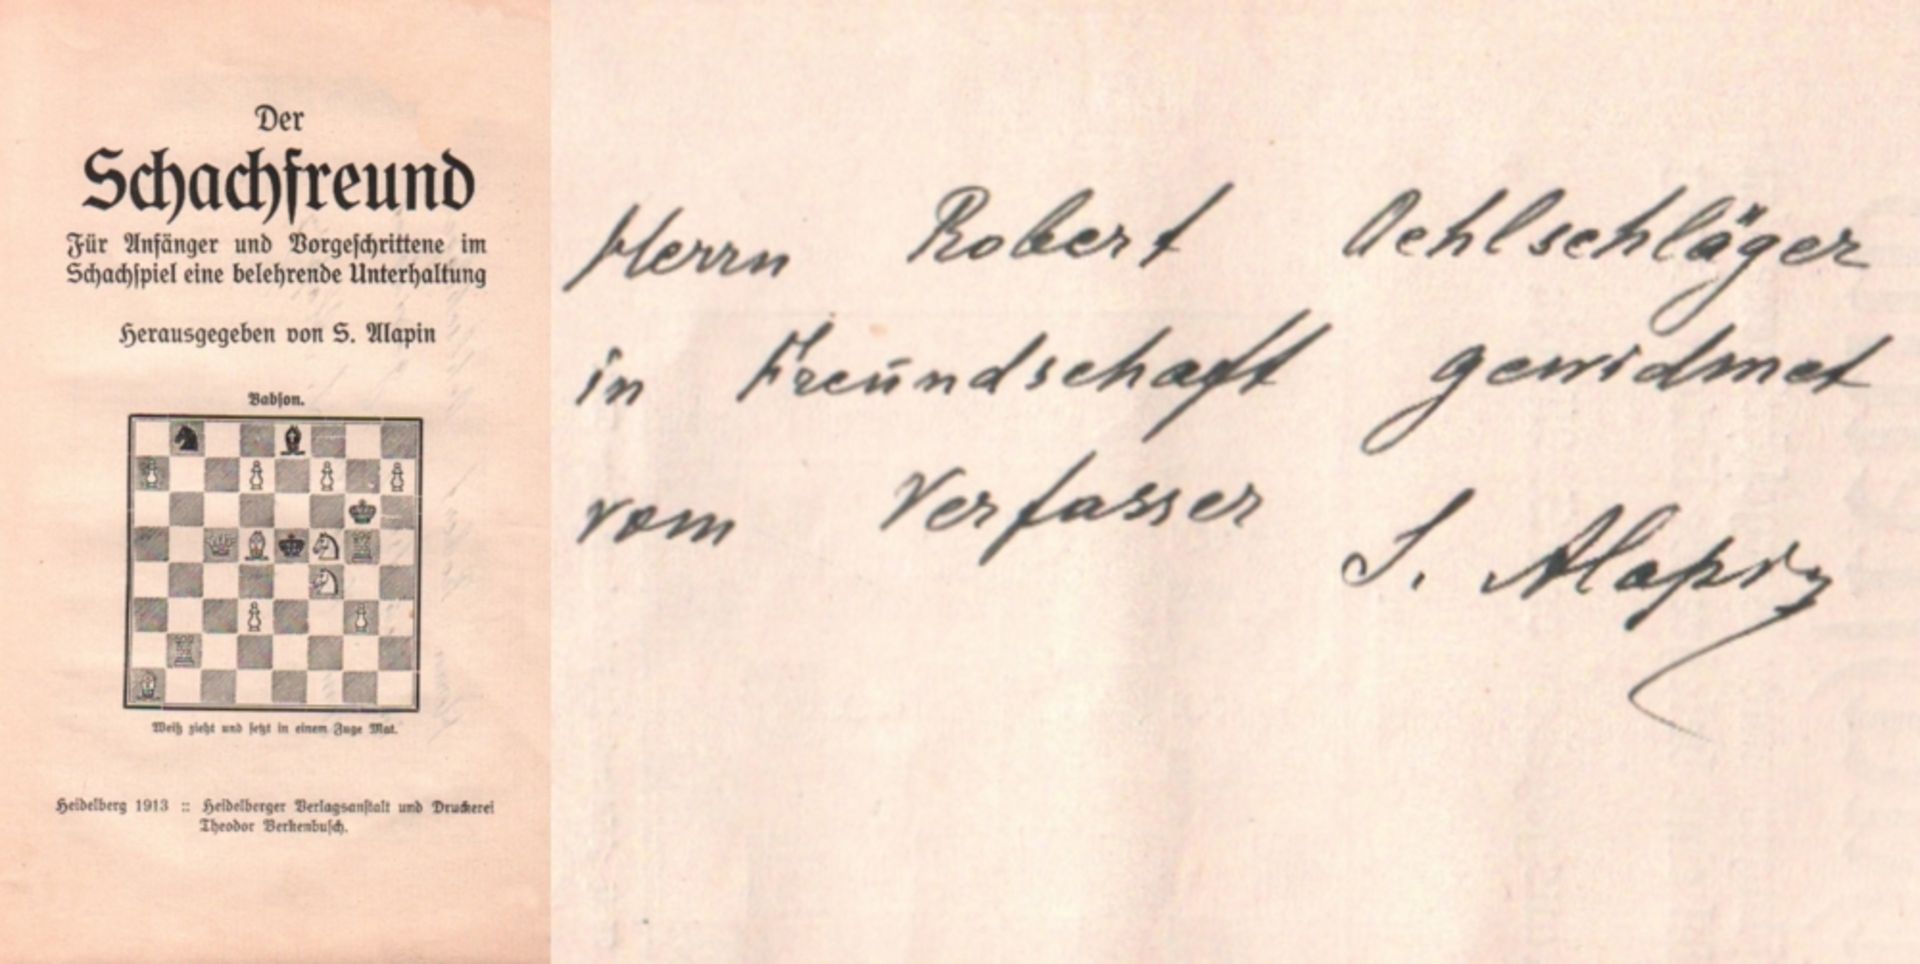 Der
Schachfreund
Für Anfänger und Vorgeschrittene im
Schachspiel eine belehrende Unterhaltung
Herausgegeben von S. Alapin
Babson.
Weiß zieht und setzt in einem Zuge Mat.
Heidelberg 1913 :: Heidelberger Verlagsanstalt und Druckerei
Theodor Berkenbusch.
Herrn Robert Oehlschläger
in Freundschaft gewidmet
vom Verfasser
S. Alapin